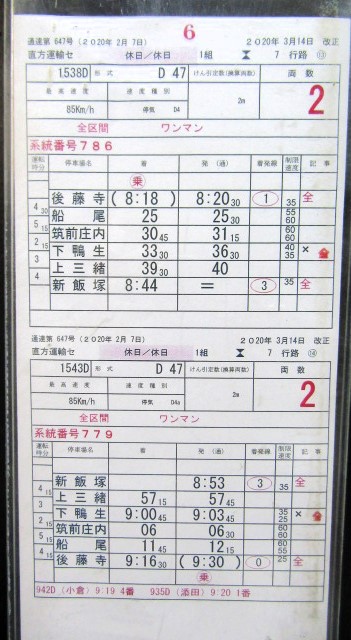 6
通達第 647号 (2020年 2月 7日) 2020年 3月14日 改正
直方運輸セ 休日/休日 1組 7 行路 ⑬
1538D 形式 D 47 けん引定数(換算両数) 両数
最高速度 速度種別 2m 2
85Km/h 停気 D4
全区間 ワンマン
系統番号786
運転時分 停車場名 着 発 (通) 着発線 制限速度 記事
㊚
後藤寺 (8:18) 8:20 30 1 35 全
4 30 船尾 25 25 30 55 60
5 15 筑前庄内 30 45 31 15 60 60
2 15 下鴨生 33 30 36 30 40 35 ×
3 上三緒 39 30 40
4 新飯塚 8:44 = 3 35 全
通達第 647号 (2020年 2月 7日) 2020年 3月14日 改正
直方運輸セ 休日/休日 1組 7 行路 ⑭
1543D 形式 D 47 けん引定数(換算両数) 両数
最高速度 速度種別 2m 2
85Km/h 停気 D4a
全区間 ワンマン
系統番号779
運転時分 停車場名 着 発 (通) 着発線 制限速度 記事
新飯塚 8:53 3 35 全
4 15 上三緒 57 15 57 45
3 下鴨生 9:00 45 9:03 45 35 25 ×
2 15 筑前庄内 06 06 30 60 60
5 15 船尾 11 45 12 15 60 55
4 15 後藤寺 9:16 30 (9:30) 0 25 全
942D (小倉) 9:19 4番 935D (添田) 9:20 1番